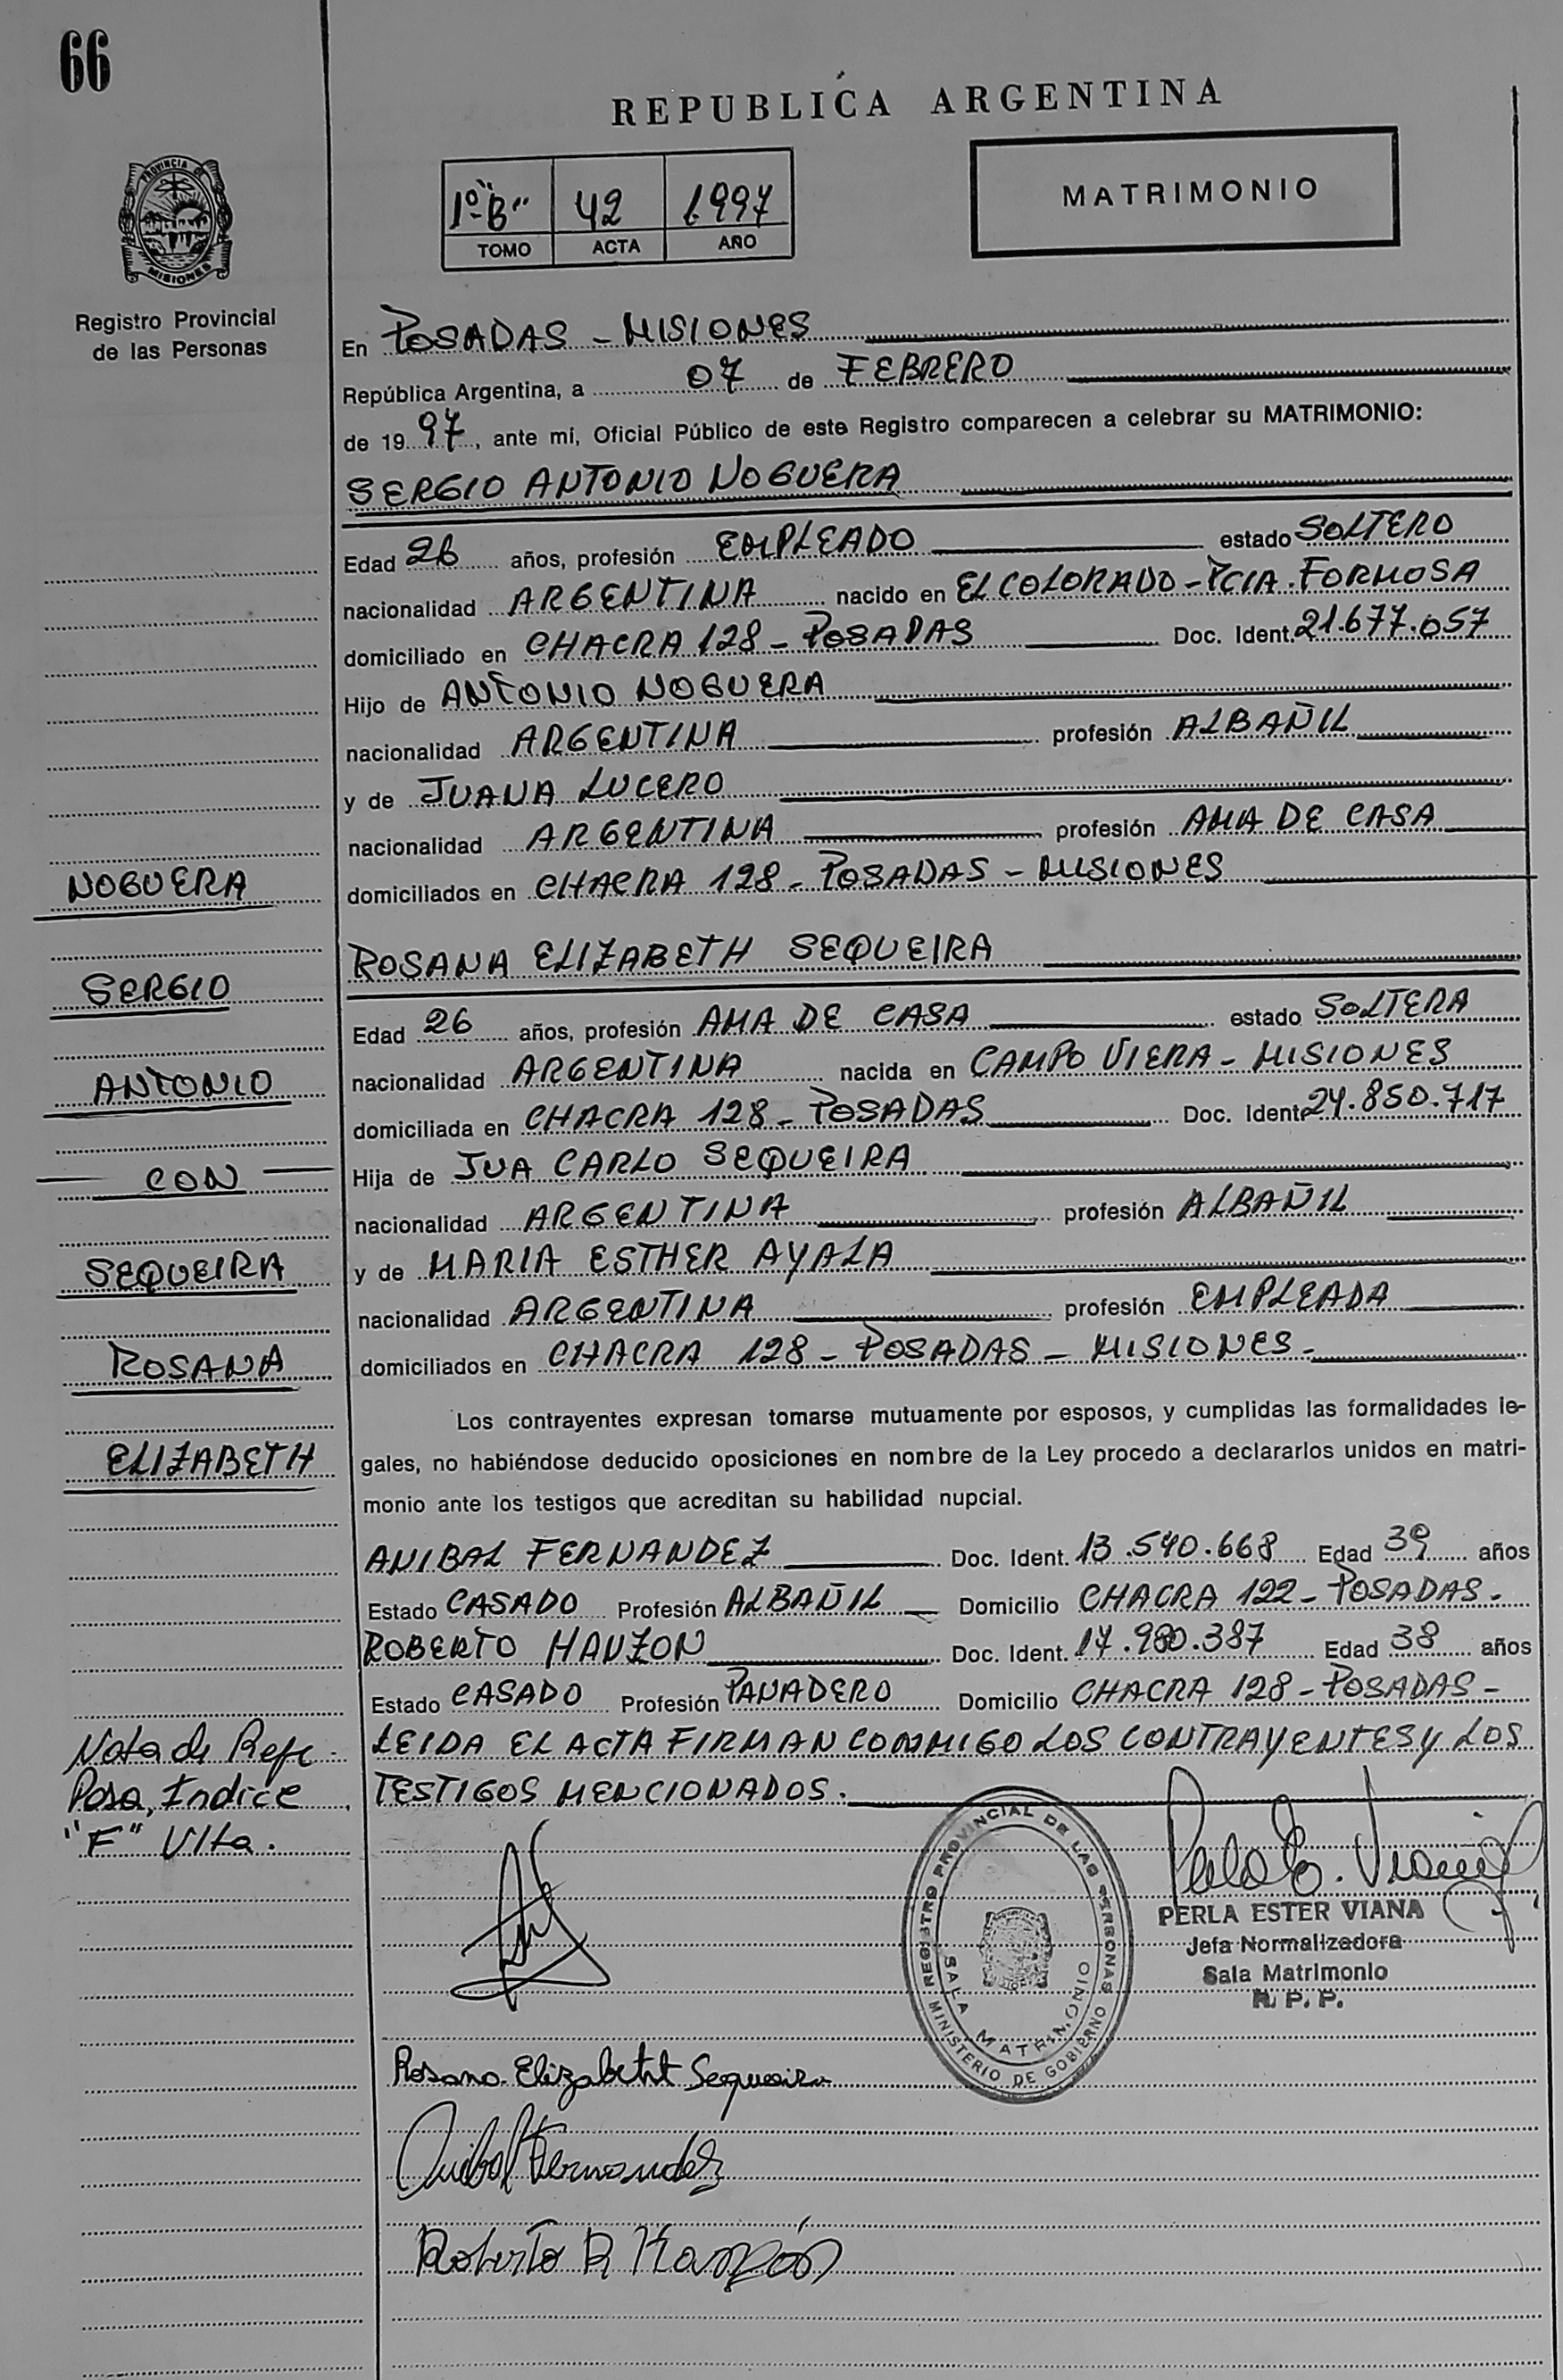 66
REPUBLICA ARGENTINA
PROVINCIA DE
MISIONES
Registro Provincial
de las Personas
1º "B" 42 1997
TOMO ACTA AÑO
MATRIMONIO
En POSADAS - MISIONES
República Argentina, a 07 de FEBRERO
de 1997, ante mí, Oficial Público de este Registro comparecen a celebrar su MATRIMONIO:
SERGIO ANTONIO NOGUERA
Edad 26 años, profesión EMPLEADO estado SOLTERO
nacionalidad ARGENTINA nacido en EL COLORADO - PCIA. FORMOSA
domiciliado en CHACRA 128 - POSADAS Doc. Ident. 21.677.057
Hijo de ANTONIO NOGUERA
nacionalidad ARGENTINA profesión ALBAÑIL
y de JUANA LUCERO
nacionalidad ARGENTINA profesión AMA DE CASA
domiciliados en CHACRA 128 - POSADAS - MISIONES
ROSANA ELIZABETH SEQUEIRA
Edad 26 años, profesión AMA DE CASA estado SOLTERA
nacionalidad ARGENTINA nacida en CAMPO VIERA - MISIONES
domiciliada en CHACRA 128 - POSADAS Doc. Ident. 24.850.717
Hija de JUA CARLO SEQUEIRA
nacionalidad ARGENTINA profesión ALBAÑIL
y de MARIA ESTHER AYALA
nacionalidad ARGENTINA profesión EMPLEADA
domiciliados en CHACRA 128 - POSADAS - MISIONES -
Los contrayentes expresan tomarse mutuamente por esposos, y cumplidas las formalidades le-
gales, no habiéndose deducido oposiciones en nombre de la Ley procedo a declararlos unidos en matri-
monio ante los testigos que acreditan su habilidad nupcial.
ANIBAL FERNANDEZ Doc. Ident. 13.540.668 Edad 39 años
Estado CASADO Profesión ALBAÑIL Domicilio CHACRA 122 - POSADAS -
ROBERTO HANZON Doc. Ident. 17.980.387 Edad 38 años
Estado CASADO Profesión PANADERO Domicilio CHACRA 128 - POSADAS -
LEIDA EL ACTA FIRMAN CONMIGO LOS CONTRAYENTES Y LOS
TESTIGOS MENCIONADOS.
NOGUERA
SERGIO
ANTONIO
CON
SEQUEIRA
ROSANA
ELIZABETH
Nota de Refe.
Pasa, Indice
"F" Vlta.
REGISTRO PROVINCIAL DE LAS PERSONAS
SALA MATRIMONIO
MINISTERIO DE GOBIERNO
PERLA ESTER VIANA
Jefa Normalizadora
Sala Matrimonio
R. P. P.
Rosana Elizabeht Sequeira
Anibal Fernandez
Roberto R Hanzon